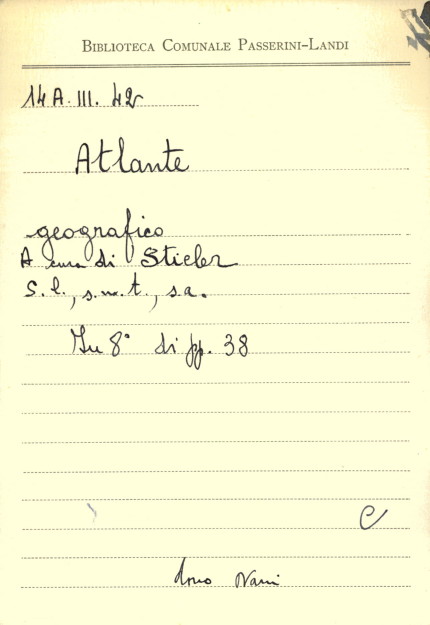 BIBLIOTECA COMUNALE PASSERINI-LANDI
14 A. III. 42
Atlante
geografico
A cura di Stieler
S. l., s. n. t., s.a.
In 8° di pp. 38
C
dono Nani